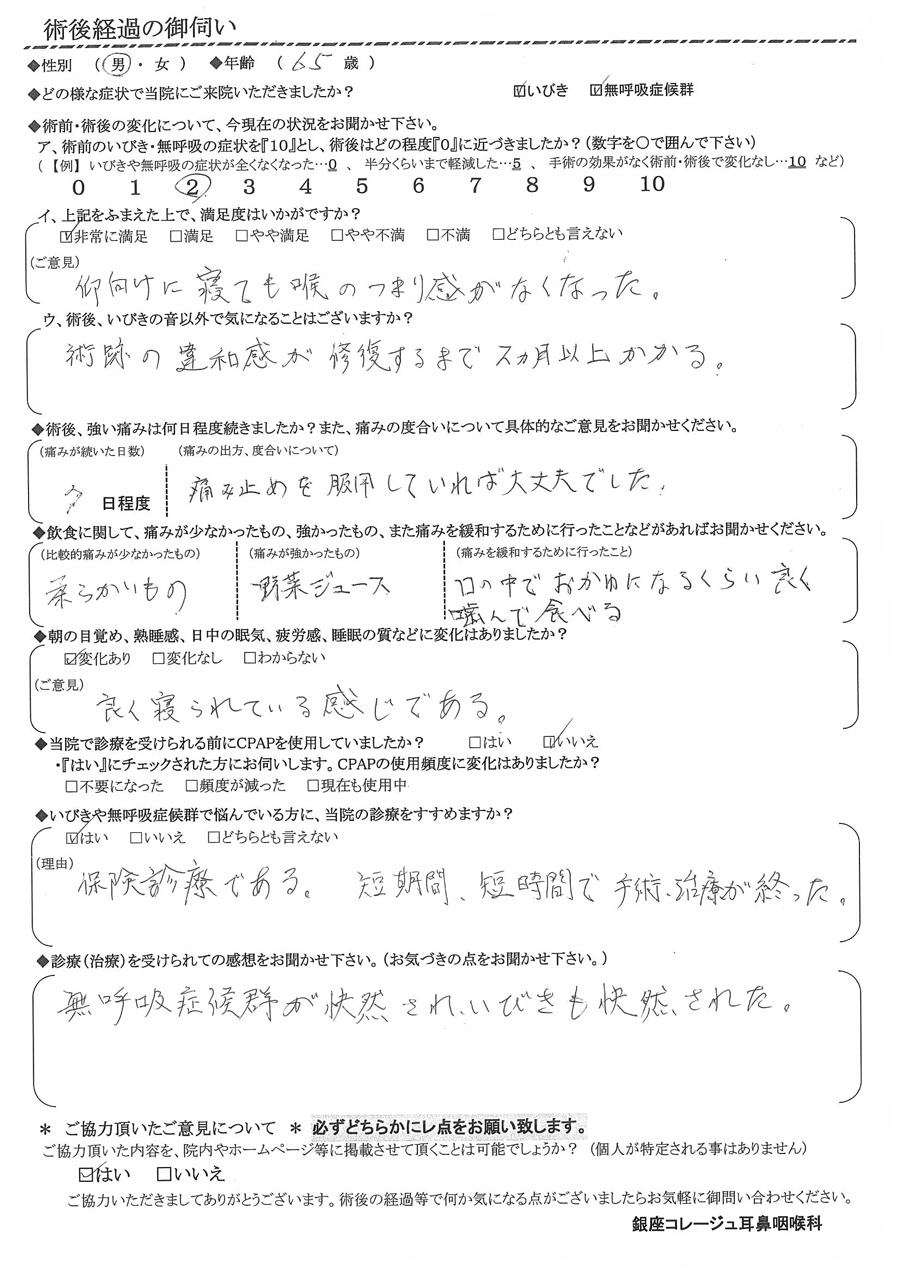 術後経過の御伺い
◆性別 （男・女） ◆年齢 （65歳）
◆どの様な症状で当院にご来院いただきましたか？ ☑いびき ☑無呼吸症候群
◆術前・術後の変化について、今現在の状況をお聞かせ下さい。
ア、術前のいびき・無呼吸の症状を『10』とし、術後はどの程度『0』に近づきましたか？(数字を○で囲んで下さい)
（【例】いびきや無呼吸の症状が全くなくなった…0 、半分くらいまで軽減した…5 、手術の効果がなく術前・術後で変化なし…10 など）
0 1 2 3 4 5 6 7 8 9 10
イ、上記をふまえた上で、満足度はいかがですか？
☑非常に満足 □満足 □やや満足 □やや不満 □不満 □どちらとも言えない
(ご意見)
仰向けに寝ても喉のつまり感がなくなった。
ウ、術後、いびきの音以外で気になることはございますか？
術跡の違和感が修復するまで2ヵ月以上かかる。
◆術後、強い痛みは何日程度続きましたか？また、痛みの度合いについて具体的なご意見をお聞かせください。
(痛みが続いた日数) (痛みの出方、度合いについて)
日程度 痛み止めを服用していれば大丈夫でした。
◆飲食に関して、痛みが少なかったもの、強かったもの、また痛みを緩和するために行ったことなどがあればお聞かせください。
(比較的痛みが少なかったもの) (痛みが強かったもの) (痛みを緩和するために行ったこと)
柔らかいもの 野菜ジュース 口の中でおかゆになるくらい良く
噛んで食べる
◆朝の目覚め、熟睡感、日中の眠気、疲労感、睡眠の質などに変化はありましたか？
☑変化あり □変化なし □わからない
(ご意見)
良く寝られている感じである。
◆当院で診療を受けられる前にCPAPを使用していましたか？ □はい ☑いいえ
・『はい』にチェックされた方にお伺いします。CPAPの使用頻度に変化はありましたか？
□不要になった □頻度が減った □現在も使用中
◆いびきや無呼吸症候群で悩んでいる方に、当院の診療をすすめますか？
☑はい □いいえ □どちらとも言えない
(理由)
保険診療である。 短期間、短時間で手術、治療が終った。
◆診療(治療)を受けられての感想をお聞かせ下さい。(お気づきの点をお聞かせ下さい。)
無呼吸症候群が快然され、いびきも快然された。
＊ ご協力頂いたご意見について ＊ 必ずどちらかにレ点をお願い致します。
ご協力頂いた内容を、院内やホームページ等に掲載させて頂くことは可能でしょうか？（個人が特定される事はありません）
☑はい □いいえ
ご協力いただきましてありがとうございます。術後の経過等で何か気になる点がございましたらお気軽に御問い合わせください。
銀座コレージュ耳鼻咽喉科